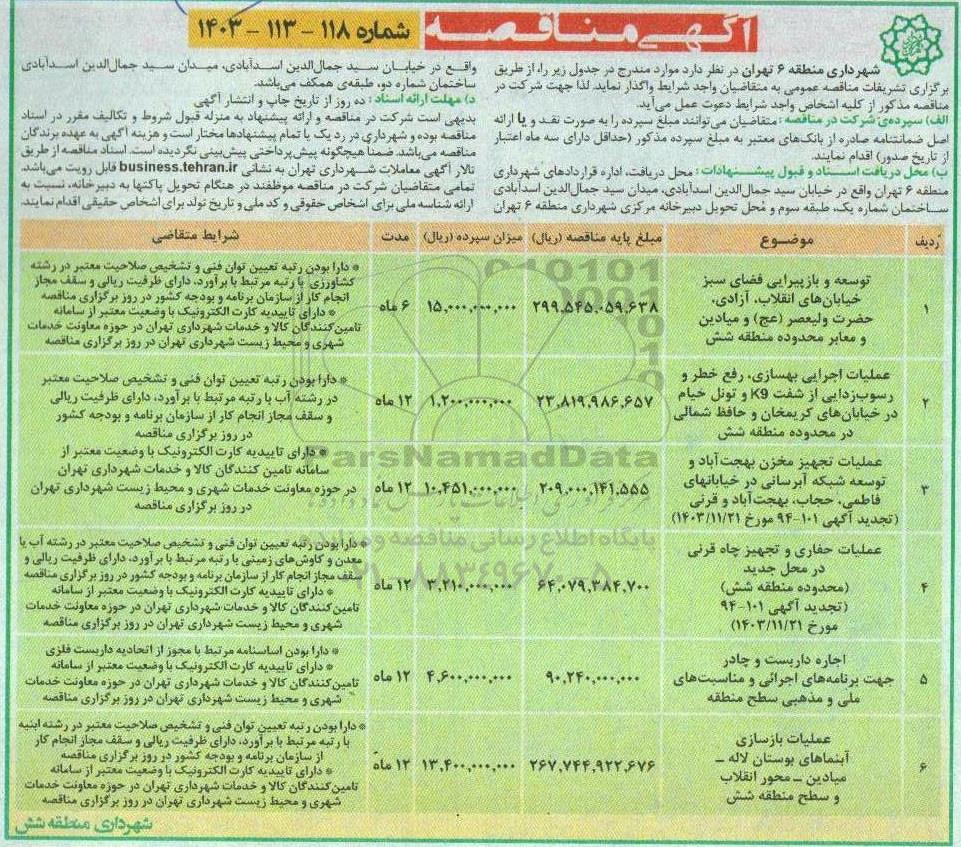 آگهی مناقصه
شماره ۱۱۸ - ۱۱۳ - ۱۴۰۳
شهرداری منطقه ۶ تهران در نظر دارد موارد مندرج در جدول زیر را، از طریق
برگزاری تشریفات مناقصه عمومی به متقاضیان واجد شرایط واگذار نماید. لذا جهت شرکت در
مناقصه مذکور از کلیه اشخاص واجد شرایط دعوت عمل می‌آید.
الف) سپرده‌ی شرکت در مناقصه: متقاضیان می‌توانند مبلغ سپرده را به صورت نقد و یا ارائه
اصل ضمانتنامه صادره از بانک‌های معتبر به مبلغ سپرده مذکور (حداقل دارای سه ماه اعتبار
از تاریخ صدور) اقدام نمایند.
ب) محل دریافت اسناد و قبول پیشنهادات: محل دریافت، اداره قراردادهای شهرداری
منطقه ۶ تهران واقع در خیابان سید جمال‌الدین اسدآبادی، میدان سید جمال‌الدین اسدآبادی
ساختمان شماره یک، طبقه سوم و محل تحویل دبیرخانه مرکزی شهرداری منطقه ۶ تهران
واقع در خیابان سید جمال‌الدین اسدآبادی، میدان سید جمال‌الدین اسدآبادی
ساختمان شماره دو، طبقه‌ی همکف می‌باشد.
د) مهلت ارائه اسناد: ده روز از تاریخ چاپ و انتشار آگهی
بدیهی است شرکت در مناقصه و ارائه پیشنهاد به منزله قبول شروط و تکالیف مقرر در اسناد
مناقصه بوده و شهرداری در رد یک یا تمام پیشنهادها مختار است و هزینه آگهی به عهده برندگان
مناقصه می‌باشد. ضمناً هیچگونه پیش‌پرداختی پیش‌بینی نگردیده است. اسناد مناقصه از طریق
تالار آگهی معاملات شهرداری تهران به نشانی business.tehran.ir قابل رویت می‌باشد.
تمامی متقاضیان شرکت در مناقصه موظفند در هنگام تحویل پاکتها به دبیرخانه، نسبت به
ارائه شناسه ملی برای اشخاص حقوقی و کد ملی و تاریخ تولد برای اشخاص حقیقی اقدام نمایند.
ردیف موضوع مبلغ پایه مناقصه (ریال) میزان سپرده (ریال) مدت شرایط متقاضی
۱
توسعه و بازپیرایی فضای سبز
خیابان‌های انقلاب، آزادی،
حضرت ولیعصر (عج) و میادین
و معابر محدوده منطقه شش
۲۹۹,۵۴۵,۰۵۹,۶۳۸
۱۵,۰۰۰,۰۰۰,۰۰۰
۶ ماه
* دارا بودن رتبه تعیین توان فنی و تشخیص صلاحیت معتبر در رشته
کشاورزی با رتبه مرتبط با برآورد، دارای ظرفیت ریالی و سقف مجاز
انجام کار از سازمان برنامه و بودجه کشور در روز برگزاری مناقصه
* دارای تاییدیه کارت الکترونیک با وضعیت معتبر از سامانه
تامین‌کنندگان کالا و خدمات شهرداری تهران در حوزه معاونت خدمات
شهری و محیط زیست شهرداری تهران در روز برگزاری مناقصه
۲
عملیات اجرایی بهسازی، رفع خطر و
رسوب‌زدایی از شفت K9 و تونل خیام
در خیابان‌های کریمخان و حافظ شمالی
در محدوده منطقه شش
۲۳,۸۱۹,۹۸۶,۶۵۷
۱,۲۰۰,۰۰۰,۰۰۰
۱۲ ماه
* دارا بودن رتبه تعیین توان فنی و تشخیص صلاحیت معتبر
در رشته آب با رتبه مرتبط با برآورد، دارای ظرفیت ریالی
و سقف مجاز انجام کار از سازمان برنامه و بودجه کشور
در روز برگزاری مناقصه
* دارای تاییدیه کارت الکترونیک با وضعیت معتبر از
سامانه تامین کنندگان کالا و خدمات شهرداری تهران
در حوزه معاونت خدمات شهری و محیط زیست شهرداری تهران
در روز برگزاری مناقصه
۳
عملیات تجهیز مخزن بهجت‌آباد و
توسعه شبکه آبرسانی در خیابانهای
فاطمی، حجاب، بهجت‌آباد و قرنی
(تجدید آگهی ۱۰۱-۹۴ مورخ ۱۴۰۳/۱۱/۲۱)
۲۰۹,۰۰۰,۱۴۱,۵۵۵
۱۰,۴۵۱,۰۰۰,۰۰۰
۱۲ ماه
۴
عملیات حفاری و تجهیز چاه قرنی
در محل جدید
(محدوده منطقه شش)
(تجدید آگهی ۱۰۱-۹۴
مورخ ۱۴۰۳/۱۱/۲۱)
۶۴,۰۷۹,۳۸۴,۷۰۰
۳,۲۱۰,۰۰۰,۰۰۰
۱۲ ماه
* دارا بودن رتبه تعیین توان فنی و تشخیص صلاحیت معتبر در رشته آب یا
معدن و کاوش‌های زمینی با رتبه مرتبط با برآورد، دارای ظرفیت ریالی و
سقف مجاز انجام کار از سازمان برنامه و بودجه کشور در روز برگزاری مناقصه
* دارای تاییدیه کارت الکترونیک با وضعیت معتبر از سامانه
تامین‌کنندگان کالا و خدمات شهرداری تهران در حوزه معاونت خدمات
شهری و محیط زیست شهرداری تهران در روز برگزاری مناقصه
۵
اجاره داربست و چادر
جهت برنامه‌های اجرائی و مناسبت‌های
ملی و مذهبی سطح منطقه
۹۰,۲۴۰,۰۰۰,۰۰۰
۴,۶۰۰,۰۰۰,۰۰۰
۱۲ ماه
* دارا بودن اساسنامه مرتبط با مجوز از اتحادیه داربست فلزی
* دارای تاییدیه کارت الکترونیک با وضعیت معتبر از سامانه
تامین‌کنندگان کالا و خدمات شهرداری تهران در حوزه معاونت خدمات
شهری و محیط زیست شهرداری تهران در روز برگزاری مناقصه
۶
عملیات بازسازی
آبنماهای بوستان لاله –
میادین – محور انقلاب
و سطح منطقه شش
۲۶۷,۷۴۴,۹۲۲,۶۷۶
۱۳,۴۰۰,۰۰۰,۰۰۰
۱۲ ماه
* دارا بودن رتبه تعیین توان فنی و تشخیص صلاحیت معتبر در رشته ابنیه
با رتبه مرتبط با برآورد، دارای ظرفیت ریالی و سقف مجاز انجام کار
از سازمان برنامه و بودجه کشور در روز برگزاری مناقصه
* دارای تاییدیه کارت الکترونیک با وضعیت معتبر از سامانه
تامین‌کنندگان کالا و خدمات شهرداری تهران در حوزه معاونت خدمات
شهری و محیط زیست شهرداری تهران در روز برگزاری مناقصه
شهرداری منطقه شش
ParsNamadData
پایگاه اطلاع رسانی مناقصه و مزایده